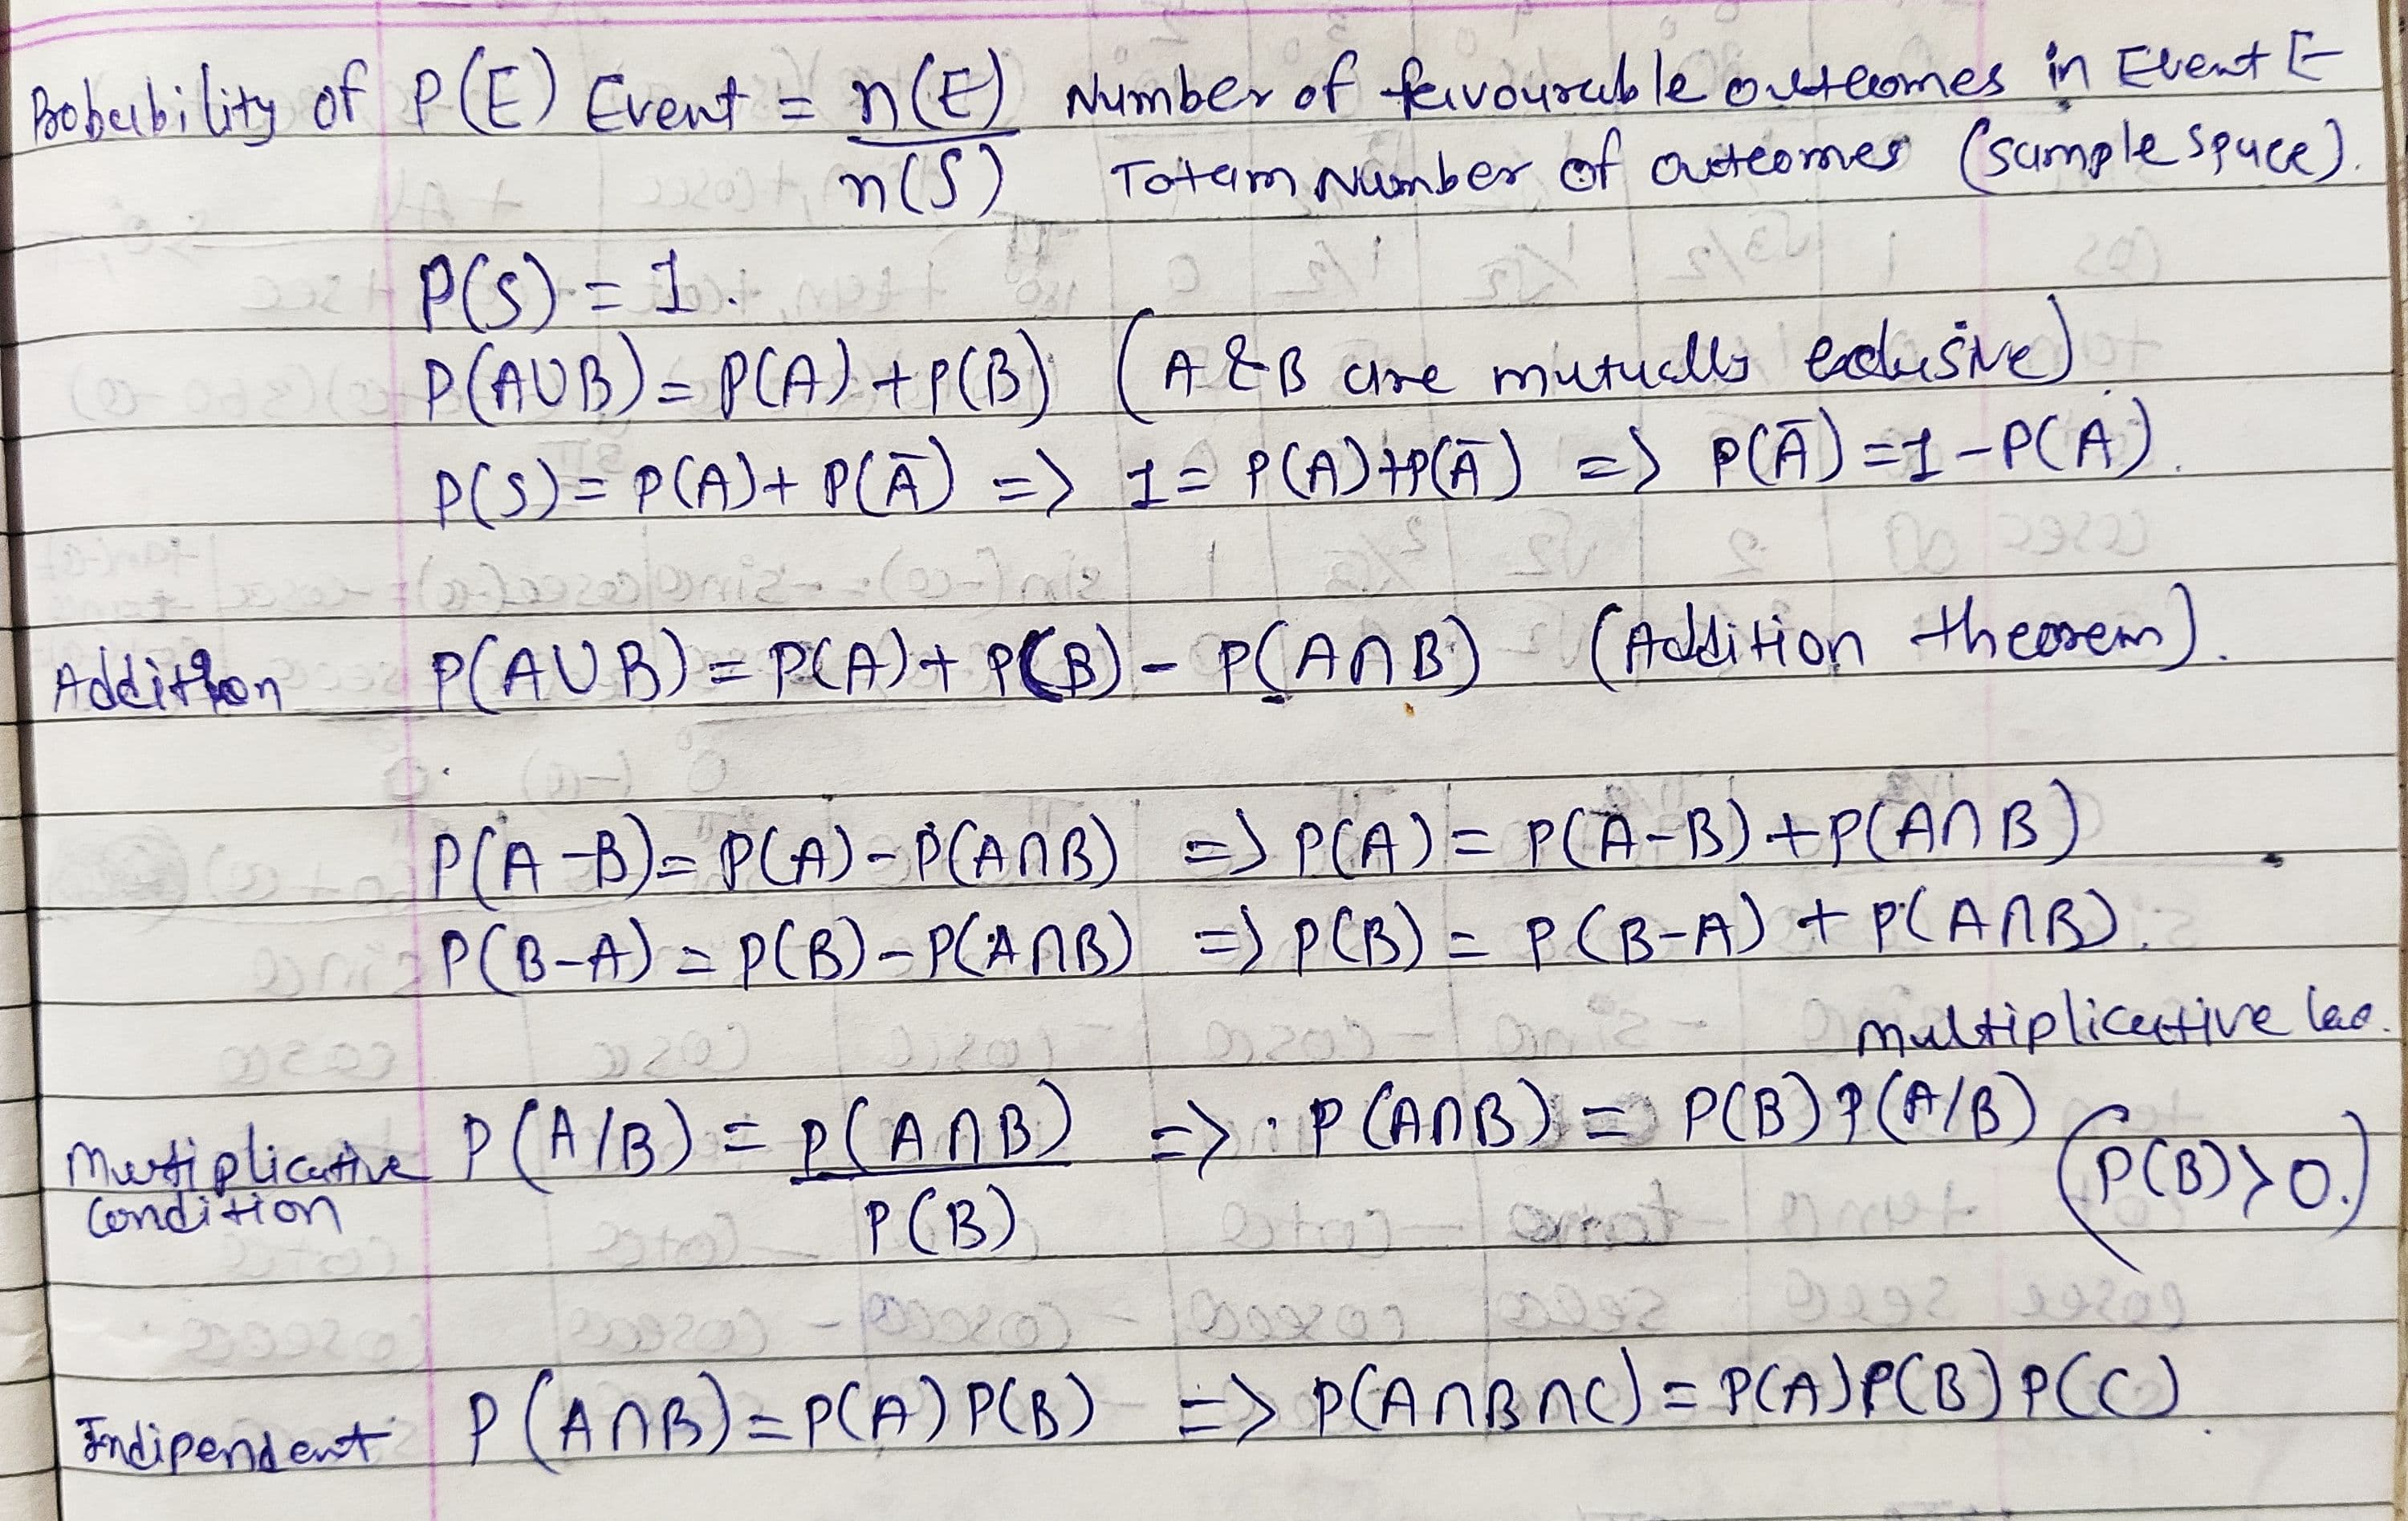 Probability of P(E) Event = n(E)/n(S) Number of favourable outcomes in Event E
Totam Number of outcomes (sample space).
P(S) = 1.
P(A∪B) = P(A) + P(B) (A & B are mutually exclusive).
P(S) = P(A) + P(Ā) => 1 = P(A) + P(Ā) => P(Ā) = 1 - P(A).
Addition P(A∪B) = P(A) + P(B) - P(A∩B) (Addition theorem).
P(A-B) = P(A) - P(A∩B) => P(A) = P(A-B) + P(A∩B)
P(B-A) = P(B) - P(A∩B) => P(B) = P(B-A) + P(A∩B).
multiplicative
Multiplicative condition P(A/B) = P(A∩B)/P(B) => P(A∩B) = P(B) P(A/B) (P(B)>0.)
Indipendent P(A∩B) = P(A) P(B) => P(A∩B∩C) = P(A) P(B) P(C).